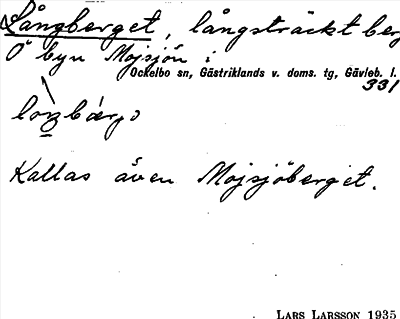 Långberget, långsträckt berg
Ö byn Mojsjön i
Ockelbo sn, Gästriklands v. doms. tg, Gävleb. l.
331
Kallas även Mojsjöberget.
LARS LARSSON 1935